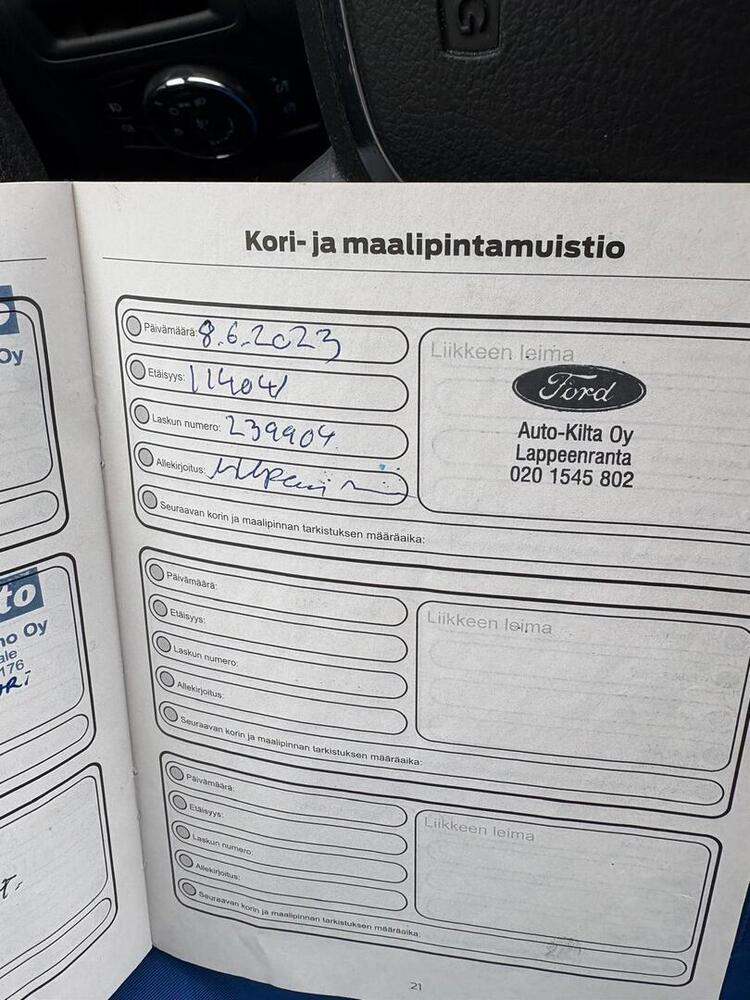 Kori- ja maalipintamuistio
Päivämäärä: 8.6.2023
Etäisyys: 114041
Laskun numero: 239904
Allekirjoitus:
Seuraavan korin ja maalipinnan tarkistuksen määräaika:
Liikkeen leima
Ford
Auto-Kilta Oy
Lappeenranta
020 1545 802
Päivämäärä:
Etäisyys:
Laskun numero:
Allekirjoitus:
Seuraavan korin ja maalipinnan tarkistuksen määräaika:
Liikkeen leima
Päivämäärä:
Etäisyys:
Laskun numero:
Allekirjoitus:
Seuraavan korin ja maalipinnan tarkistuksen määräaika:
Liikkeen leima
21
Oy
to
no Oy
ale
176